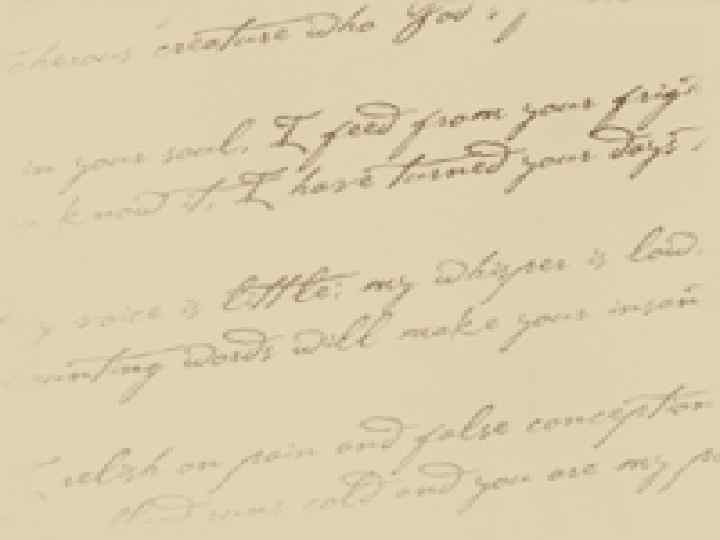 creature who
in your soul. I feed from your
know it. I have turned your days
voice is little: my whisper is low.
words will make your
relish on pain and false conception
cold and you are my